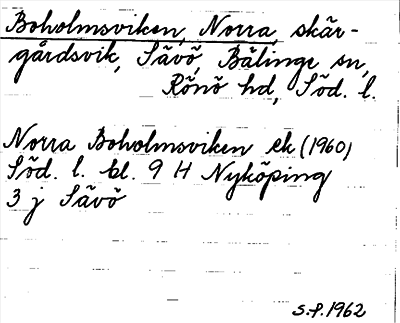 Boholmsviken, Norra, skär-
gårdsvik, Sävö, Bälinge sn,
Rönö hd, Söd. l.
Norra Boholmsviken ek (1960)
Söd. l. bl. 9 H Nyköping
3 j Sävö
S.P. 1962